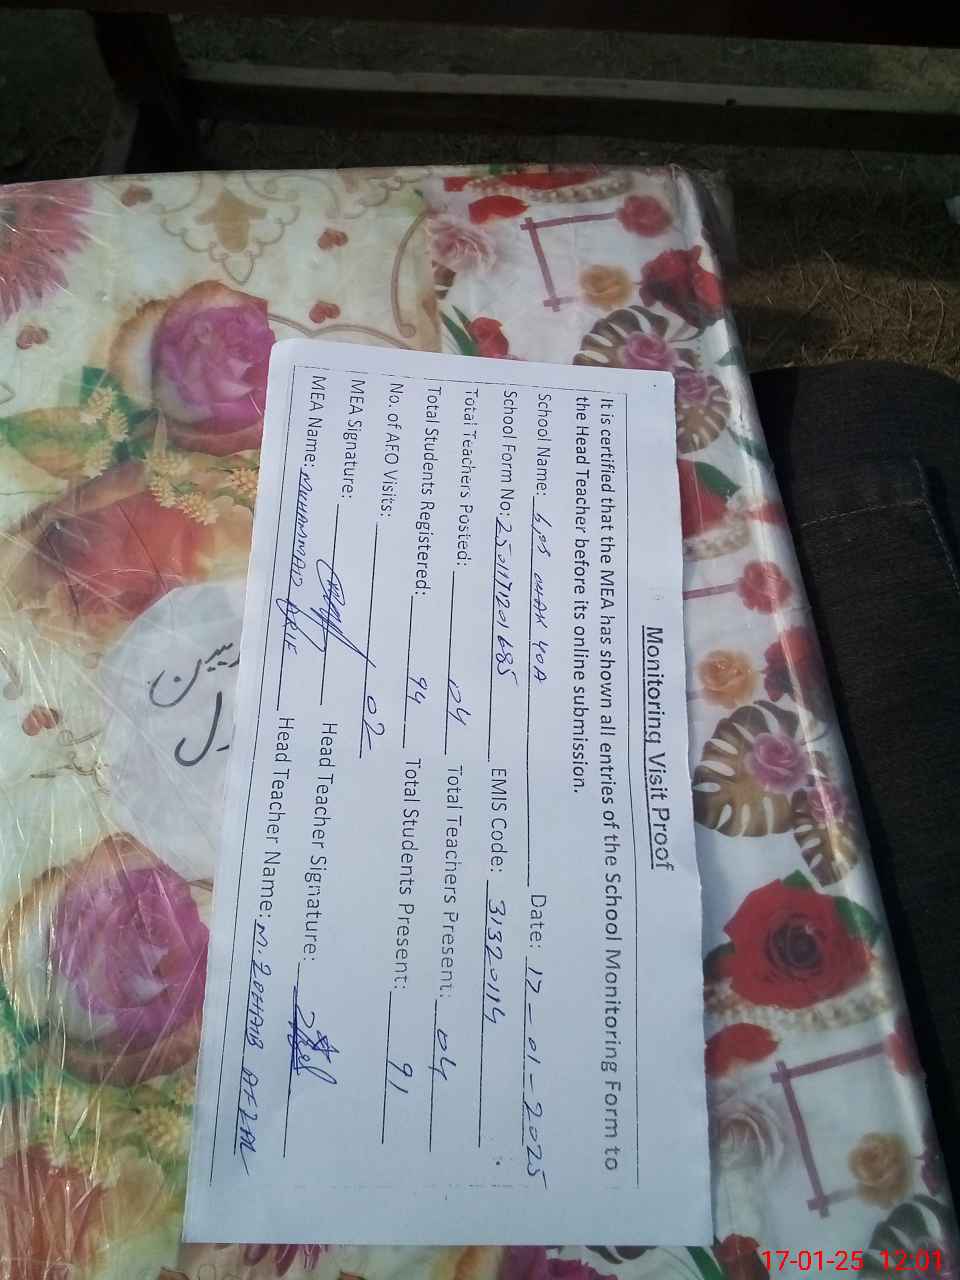 Monitoring Visit Proof
It is certified that the MEA has shown all entries of the School Monitoring Form to
the Head Teacher before its online submission.
School Name: GPS CHAK 40A Date: 17-01-2025
School Form No: 2501171201685 EMIS Code: 31320114
Total Teachers Posted: 04 Total Teachers Present: 04
Total Students Registered: 94 Total Students Present: 91
No. of AEO Visits: 02
MEA Signature: Head Teacher Signature:
MEA Name: MUHAMMAD ARIF Head Teacher Name: M. ZOHAIB AFZAL
17-01-25 12:01